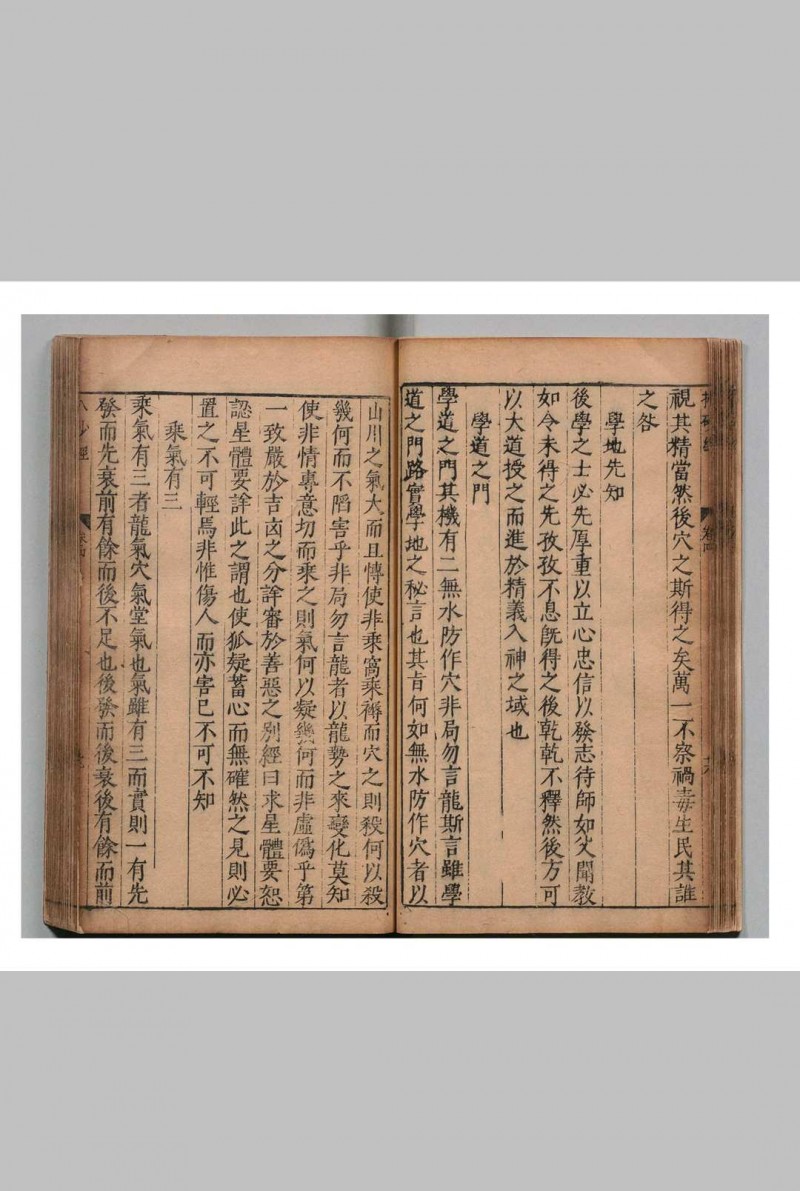 視其精當然後穴之斯得之矣萬一不察禍毒生民其誰
之咎
學地先知
後學之士必先厚重以立心忠信以發志待師如父聞教
如令未得之先孜孜不息旣得之後乾乾不釋然後方可
以大道授之而進於精義入神之域也
學道之門
學道之門其機有二無水防作穴非局勿言龍斯言雖學
道之門路實學地之秘言也其旨何如無水防作穴者以
山川之氣大而且慱使非乘窩乘褥而穴之則殺何以殺
幾何而不陷害乎非局勿言龍者以龍勢之來變化莫知
使非情專意切而乘之則氣何以疑幾何而非虛僞乎第
一致嚴於吉凶之分詳審於善惡之别經曰求星體要恕
認星體要詳此之謂也使狐疑蓄心而無確然之見則必
置之不可輕焉非惟傷人而亦害已不可不知
乘氣有三
乘氣有三者龍氣穴氣堂氣也氣雖有三而實則一有先
發而先衰前有餘而後不足也後發而後衰後有餘而前
卷四